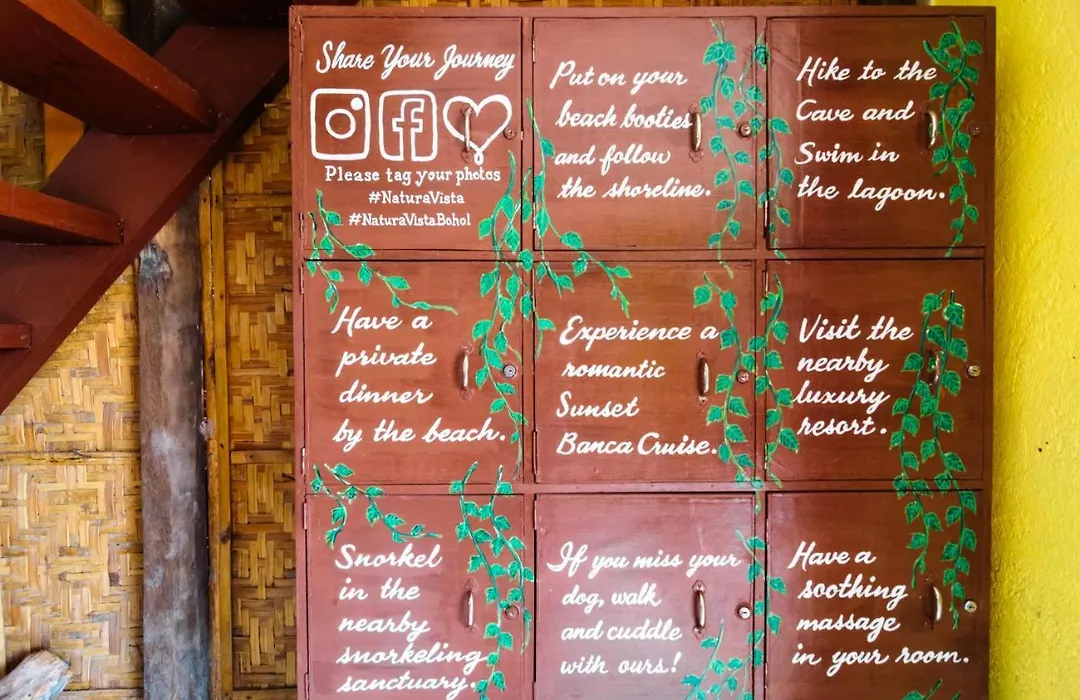 Share Your Journey
Please tag your photos
#NaturaVista
#NaturaVistaBohol
Put on your
beach booties
and follow
the shoreline.
Hike to the
Cave and
Swim in
the lagoon.
Have a
private
dinner
by the beach.
Experience a
romantic
Sunset
Banca Cruise.
Visit the
nearby
luxury
resort.
Snorkel
in the
nearby
snorkeling
sanctuary.
If you miss your
dog, walk
and cuddle
with ours!
Have a
soothing
massage
in your room.